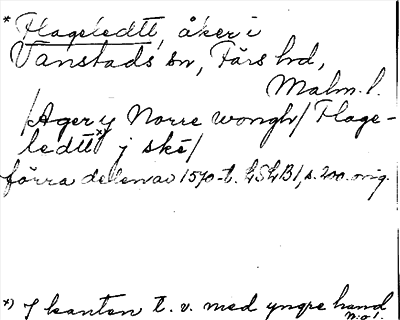 * Flageledtt, åker i
Vanstads sn, Färs hd,
Malm. l.
/Ager y Norre wongh/ Flage-
ledtt *) j skē/
förra delen av 1570-t. LSLB1, s. 200. orig.
*) I kanten t. v. med yngre hand